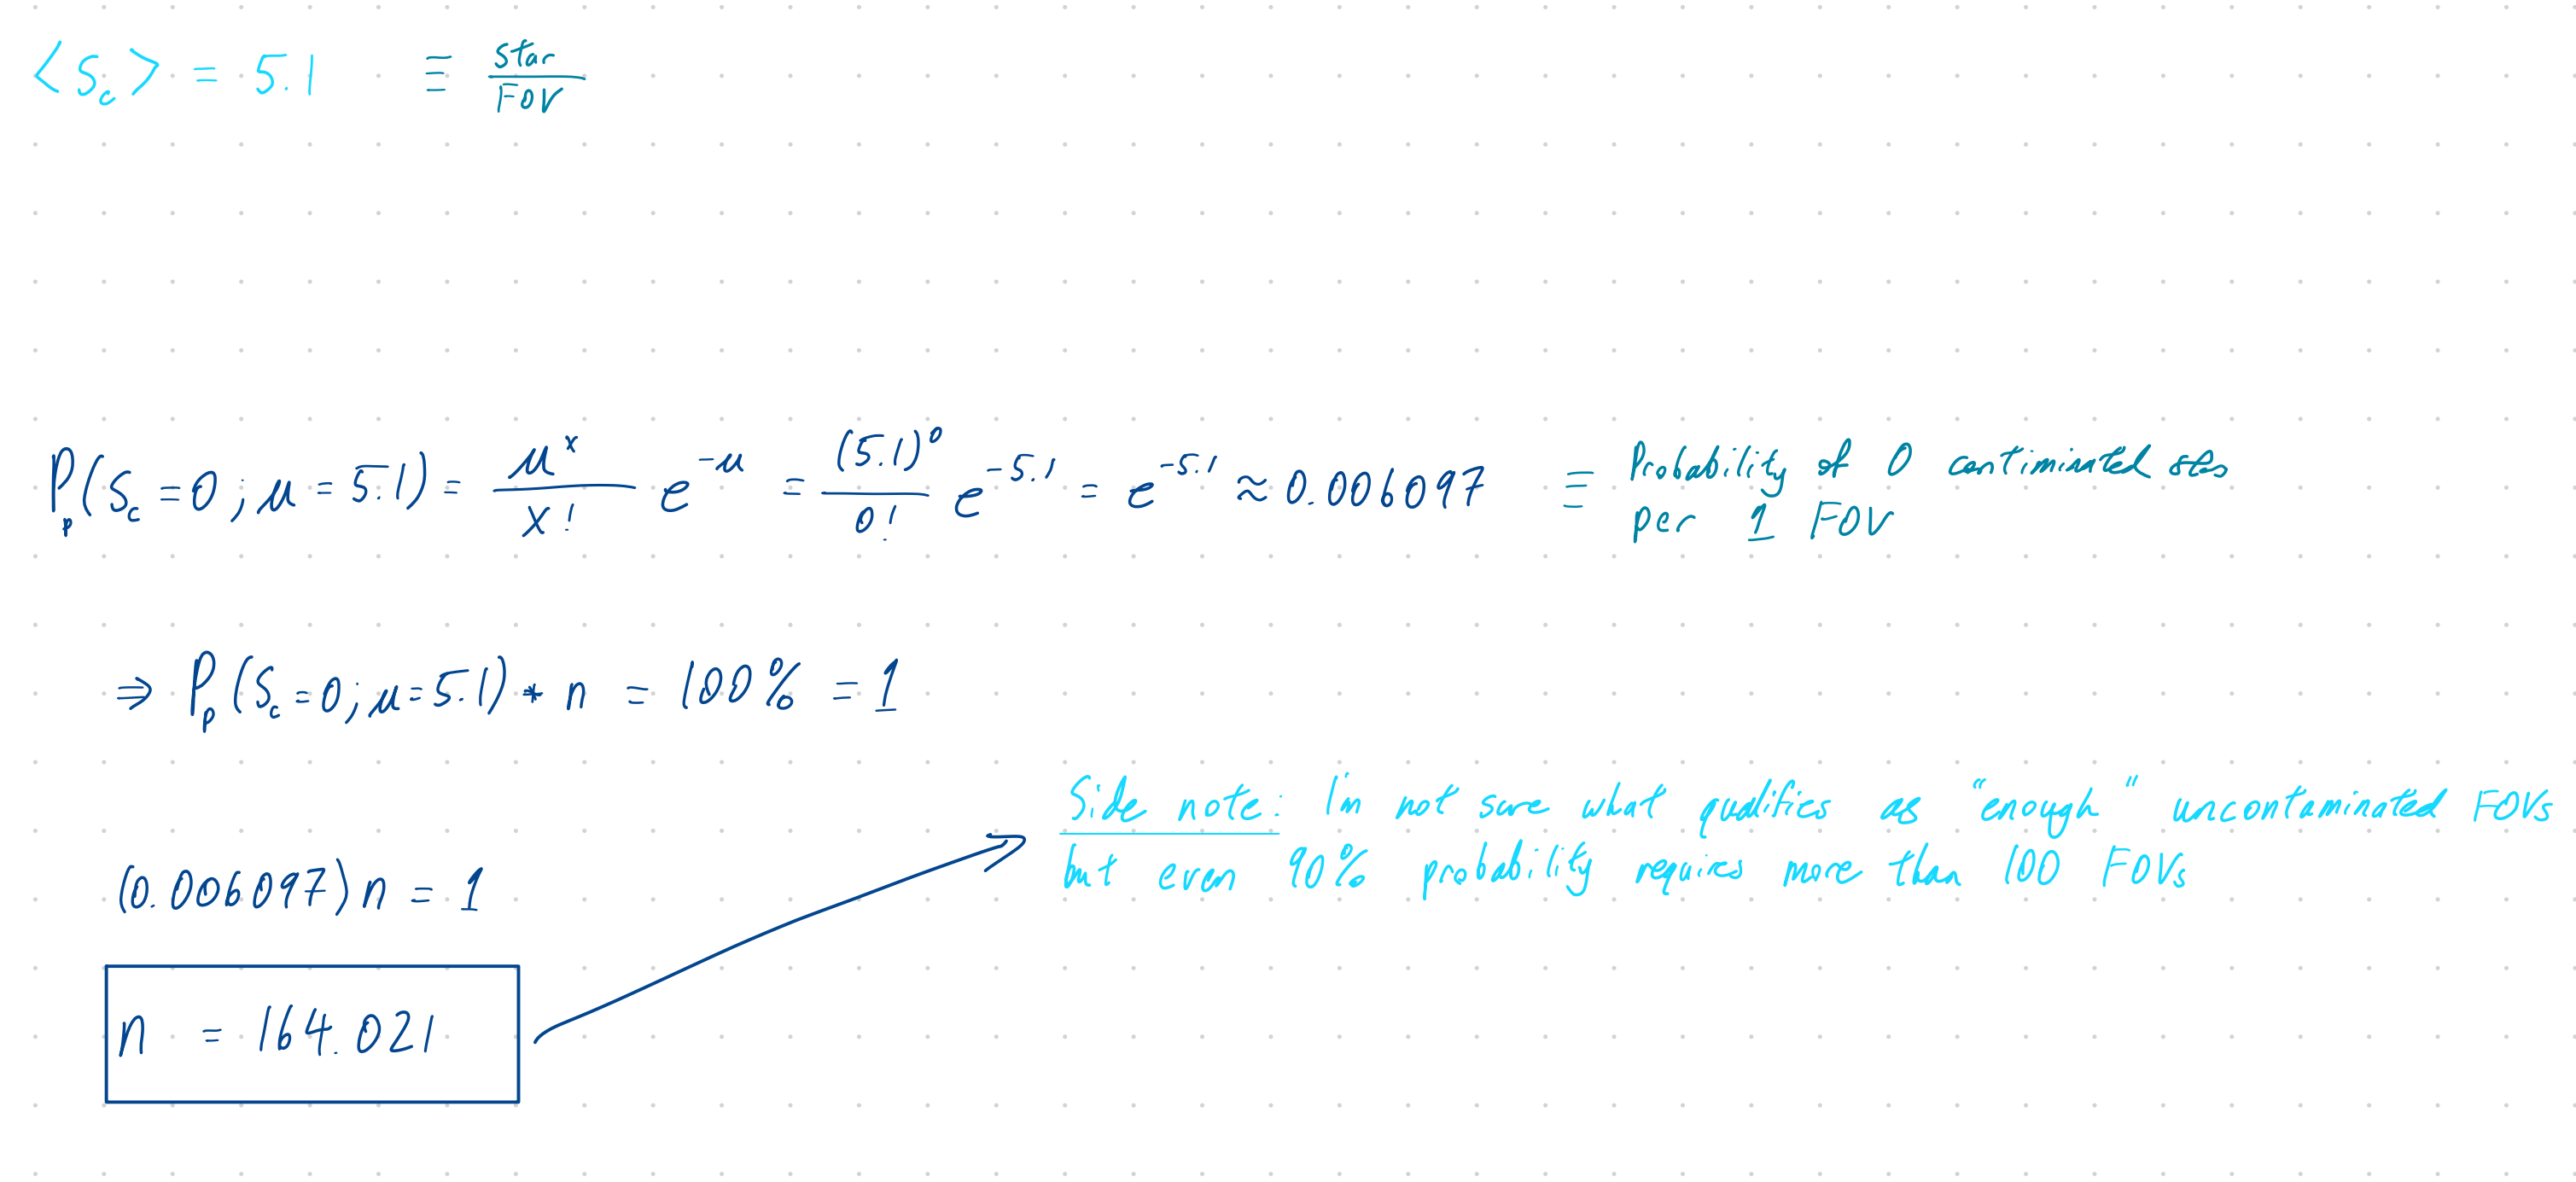 <S_c> = 5.1 ≡ star/FOV
P_p(S_c = 0; μ = 5.1) = μ^x/x! e^-μ = (5.1)^0/0! e^-5.1 = e^-5.1 ≈ 0.006097 ≡ Probability of 0 contiminated
per 1 FOV
⇒ P_p(S_c = 0; μ = 5.1) * n = 100% = 1
Side note: I'm not sure what qualifies as "enough" uncontaminated FOVs
but even 90% probability requires more than 100 FOVs
(0.006097) n = 1
n = 164.021